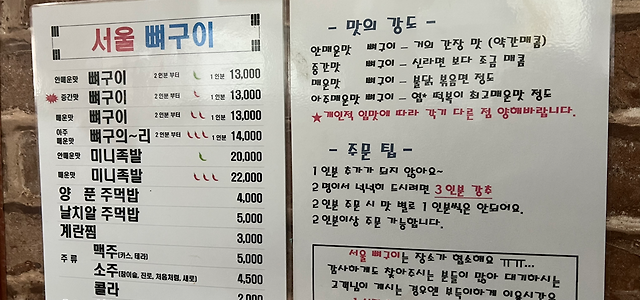 서울 뼈구이
안매운맛 뼈구이 2인분 부터 1인분 13,000
중간맛 뼈구이 2인분 부터 1인분 13,000
매운맛 뼈구이 2인분 부터 1인분 13,000
아주매운맛 뼈구의~리 2인분 부터 1인분 14,000
안매운맛 미니족발 20,000
매운맛 미니족발 22,000
양 푼 주먹밥 4,000
날치알 주먹밥 5,000
계란찜 3,000
주 류 맥주(카스, 테라) 5,000
소주(참이슬, 진로, 처음처럼, 새로) 4,500
콜라 2,000
- 맛의 강도 -
안매운맛 뼈구이 – 거의 간장 맛 (약간매콤)
중간맛 뼈구이 – 신라면 보다 조금 매콤
매운맛 뼈구이 – 불닭 볶음면 정도
아주매운맛 뼈구이 – 엽* 떡볶이 최고매운맛 정도
★개인적 입맛에 따라 각기 다른 점 양해바랍니다.
- 주문 팁 -
1인분 추가가 되지 않아요~
2명이서 넉넉히 드시려면 3인분 강추
2인분 주문 시 맛 별로 1인분씩은 안되어요.
2인분이상 주문 가능합니다.
서울 뼈구이는 장소가 협소해요 ㅠㅠ...
감사하게도 찾아주시는 분들이 많아 대기하시는
고객님이 계시는 경우엔 부득이하게 이용시간을